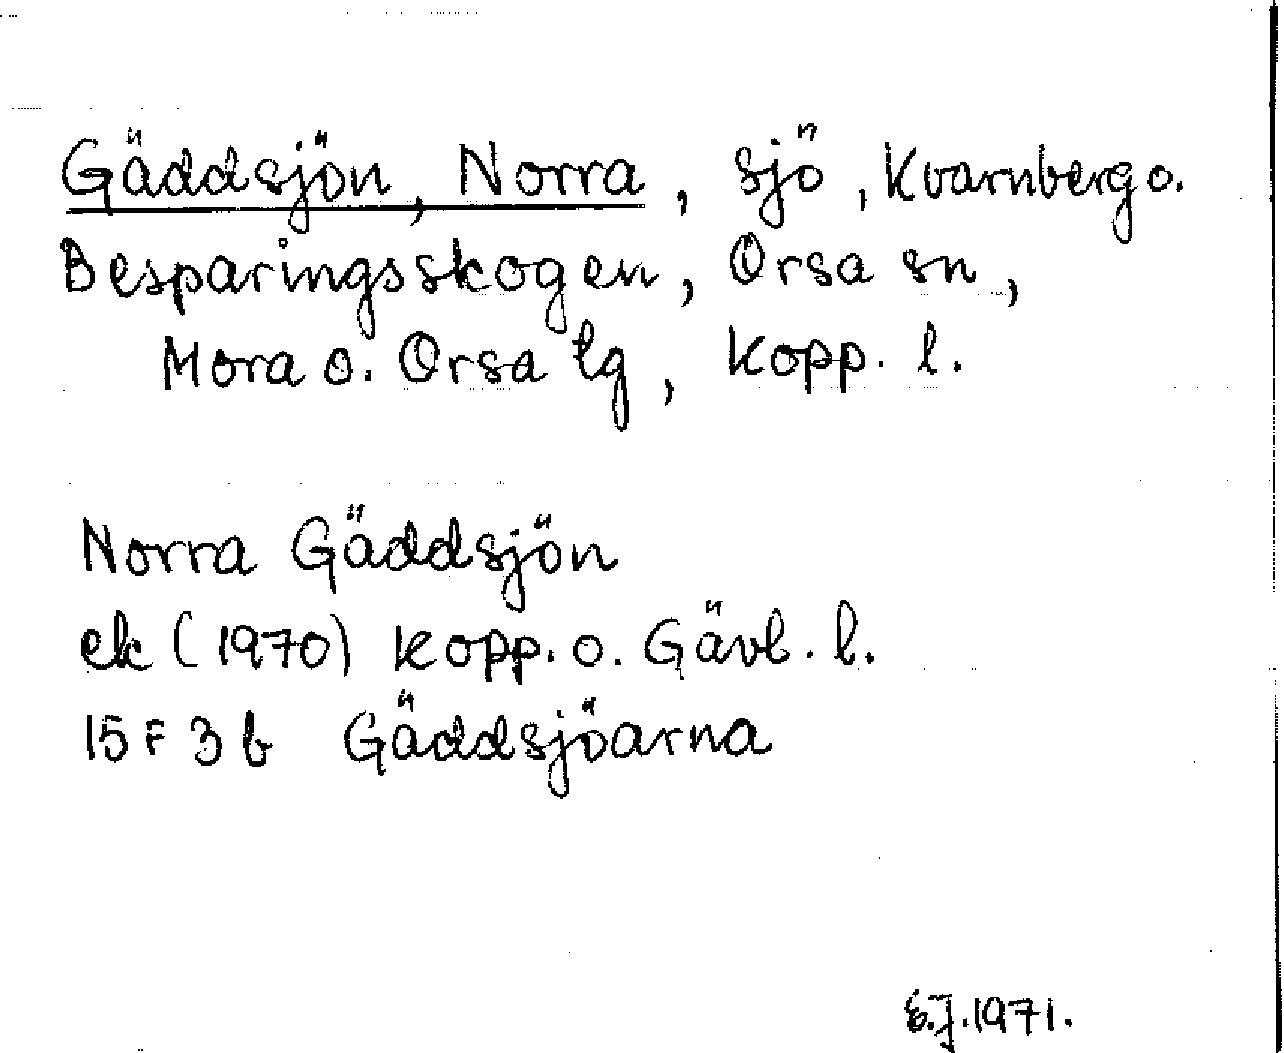 Gäddsjön, Norra, sjö, Kvarnberg o.
Besparingsskogen, Orsa sn,
Mora o. Orsa lg, Kopp. l.
Norra Gäddsjön
ek (1970) Kopp. o. Gävl. l.
15 F 3 b Gäddsjöarna
E.J. 1971.